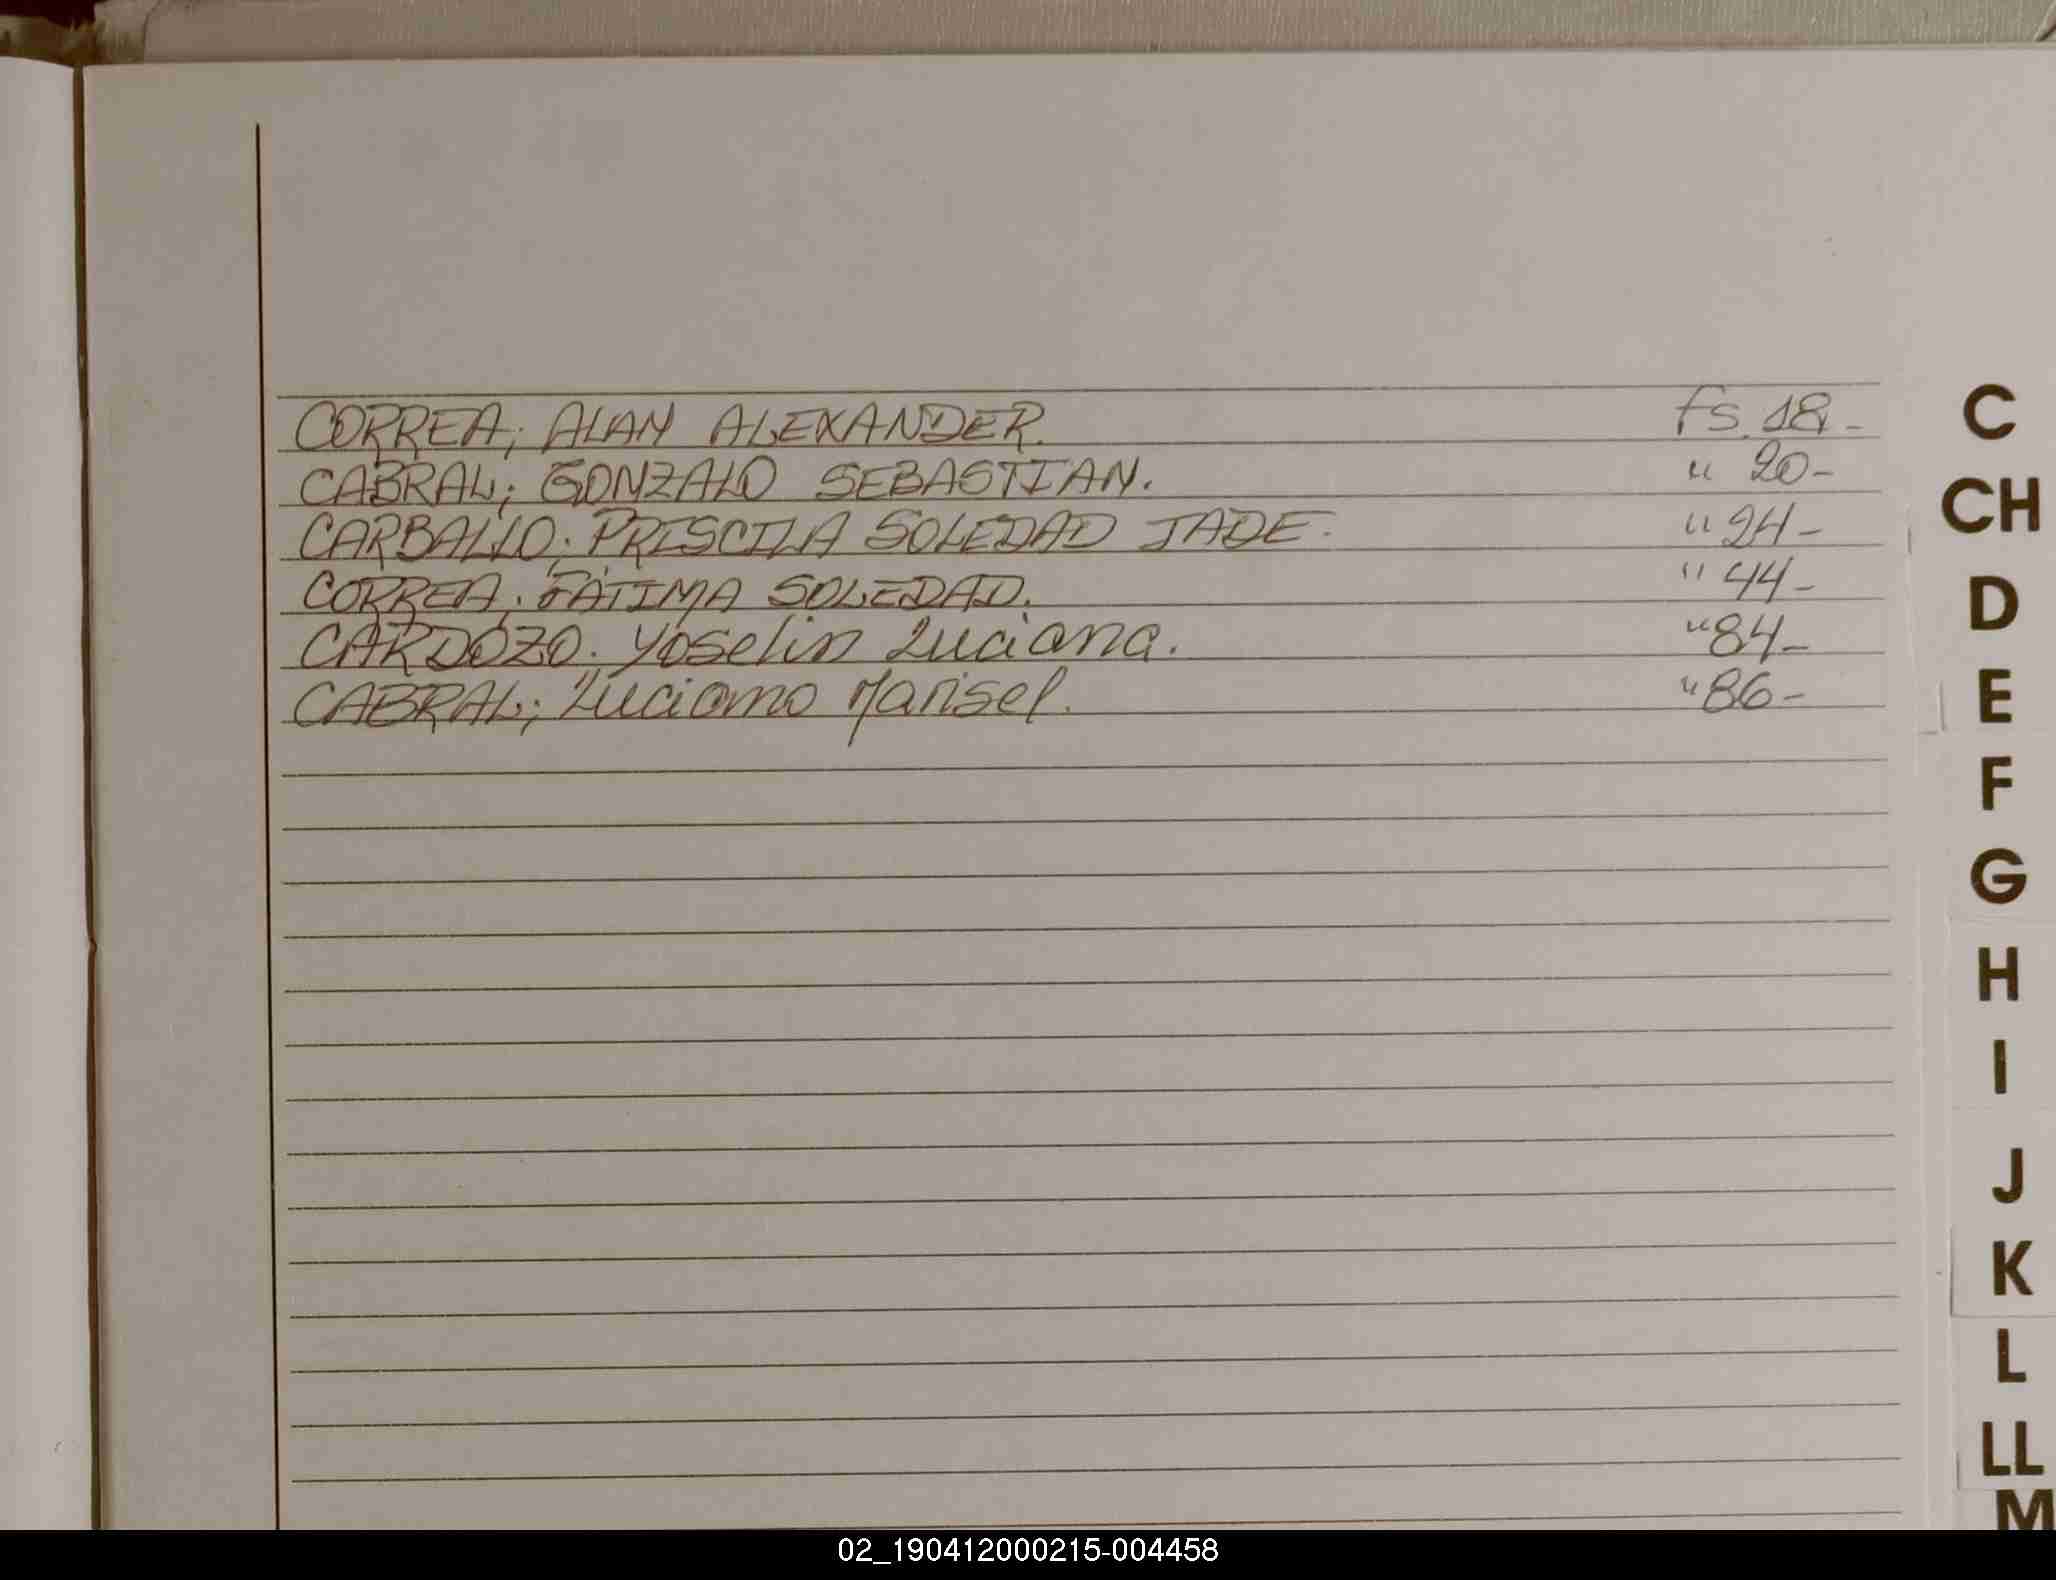 CORREA; ALAN ALEXANDER. fs. 18-
CABRAL; GONZALO SEBASTIAN. " 20-
CARBALLO; PRISCILA SOLEDAD JADE. " 24-
CORREA, FÁTIMA SOLEDAD. " 44-
CARDOZO. Yoselin Luciana. " 84-
CABRAL; Luciano Marisel. " 86-
C
CH
D
E
F
G
H
I
J
K
L
LL
M
02_190412000215-004458